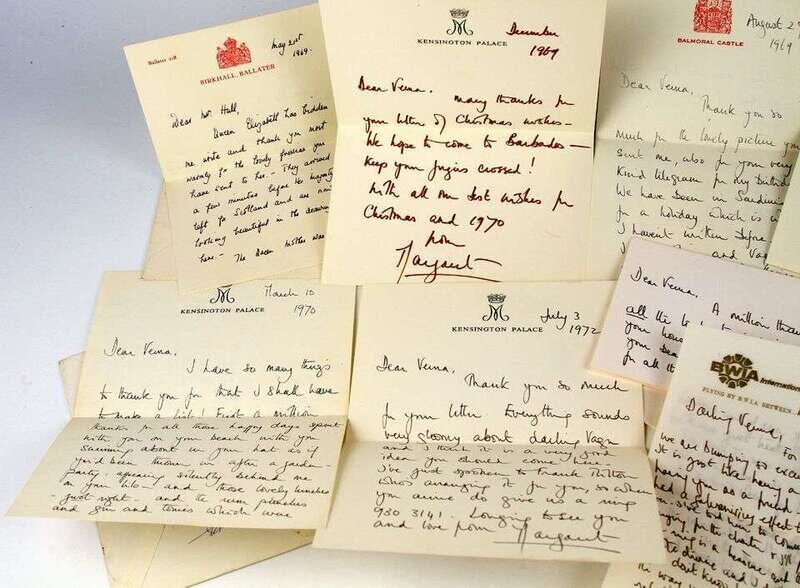 Ballater 208
BIRKHALL, BALLATER
May 21st
1969.
Dear Mr Hall,
Queen Elizabeth has bidden
me write and thank you most
warmly for the lovely freesias you
have sent to her. - They arrived
a few minutes before Her Majesty
left for Scotland and are now
looking beautiful in the drawing
here - The Queen Mother was
KENSINGTON PALACE
December
1969
Dear Verna,
Many thanks for
your letter of Christmas wishes -
We hope to come to Barbados -
keep your fingers crossed!
With all our best wishes for
Christmas and 1970
from
Margaret
BALMORAL CASTLE
August 2
1969
Dear Verna,
Thank you so
much for the lovely picture you
sent me, also for your very
kind telegram for my birthda
We have been in Sardinia
for a holiday which is
I haven't written before
KENSINGTON PALACE
March 10
1970
Dear Verna,
I have so many things
to thank you for that I shall have
to make a list! First a million
thanks for all those happy days spent
with you on your beach with you
swimming about in your hat as if
you'd been thrown in after a garden-
party, appearing silently behind me
on your lilo - and those lovely lunches
- just right - and the rum punches
and gin and tonics which were
KENSINGTON PALACE
July 3
1972
Dear Verna,
Thank you so much
for your letter. Everything sounds
very gloomy about darling Vagn
and I think it is a very good
idea you should come here.
I've just spoken to Frank
who's arranging it for you, so when
you arrive do give us a ring
930 3141. Longing to see you
and love from Margaret
Dear Verna, A million than
all the
your hous
your
for all
BWIA International
FLYING BY BWIA BETWEEN
Darling Verna,
we are bumping so
It is just like having a
having you as a friend
had a galvanising effect